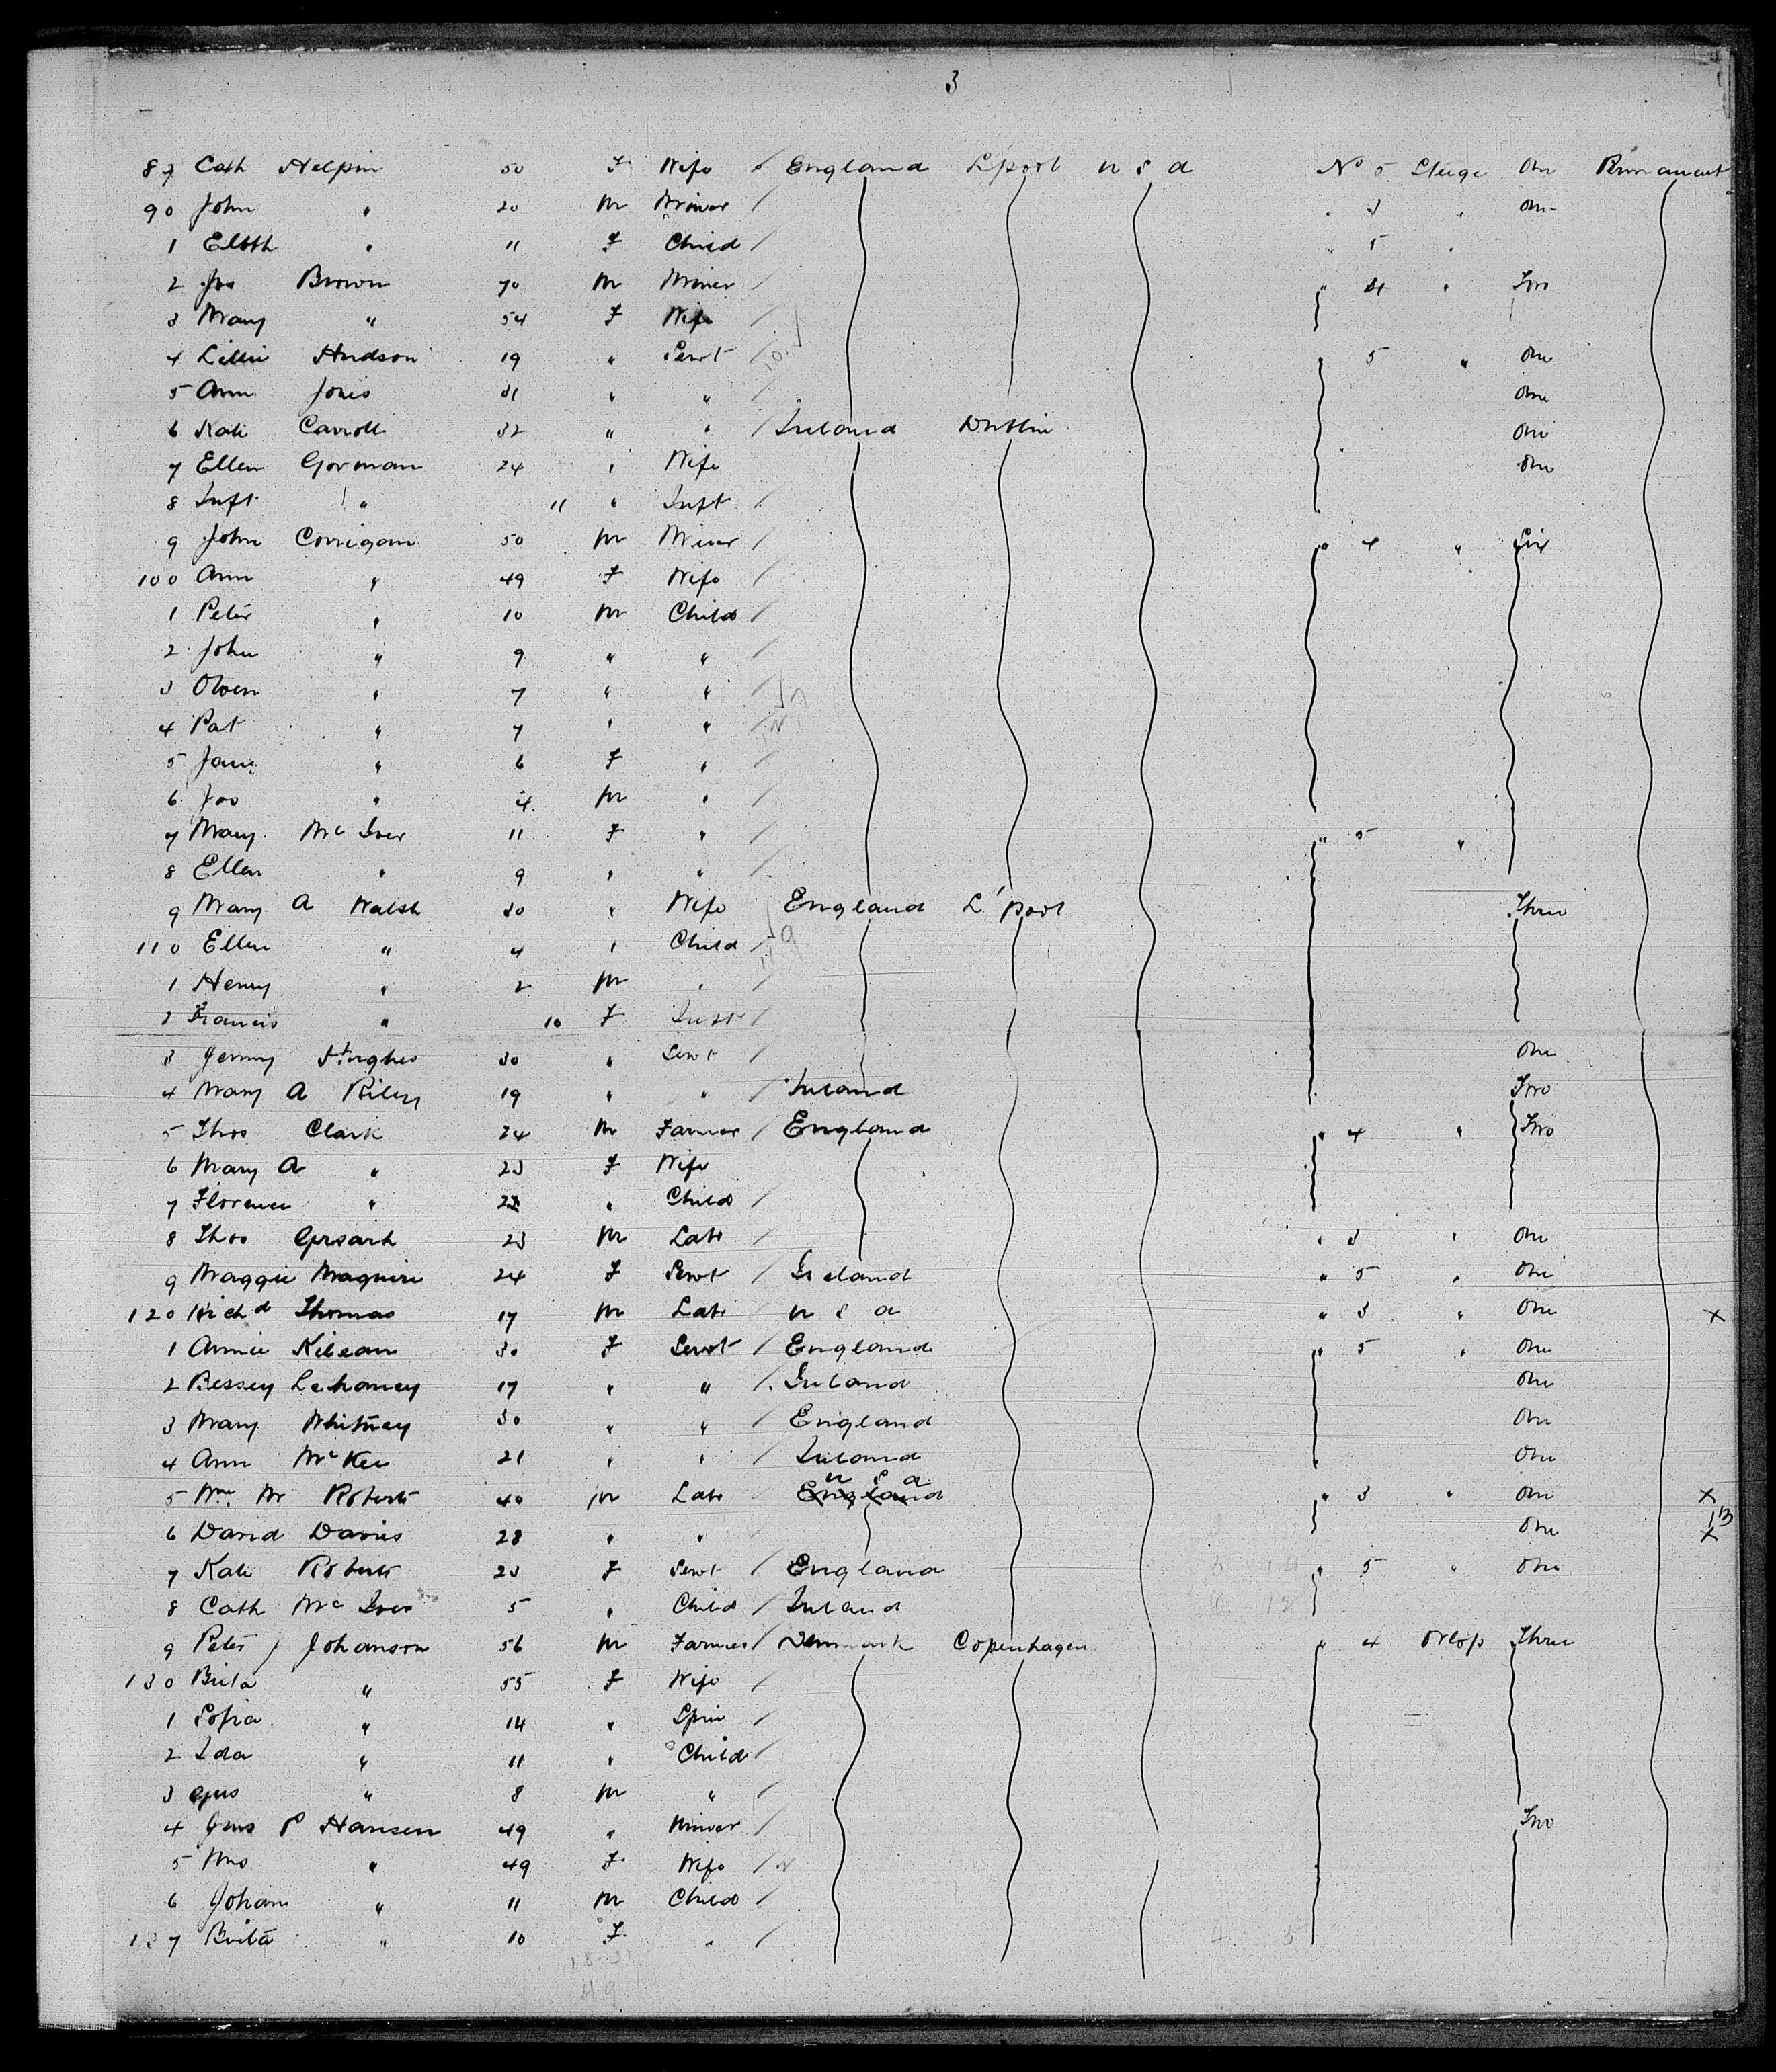 3
89 Cath Helpin 50 F Wife / England L'pool U S A No 5 Steage One Permanent
90 John " 20 M Miner / " 3 " One
1 Elbth " 11 F Child / " 5 "
2 Jos Brown 70 M Miner / " 4 " Two
3 Mary " 54 F Wife /
4 Lillie Hudson 19 " Servt / " 5 " One
5 Ann Jones 31 " " / One
6 Kate Carroll 32 " " / Ireland Dublin One
7 Ellen Gorman 24 " Wife One
8 Inft " 11 " Inft /
9 John Corrigan 50 M Miner / " 4 " Six
100 Ann " 49 F Wife /
1 Peter " 10 M Child /
2 John " 9 " " /
3 Owen " 7 " " /
4 Pat " 7 " " /
5 Jane " 6 F " /
6 Jos " 4 M " /
7 Mary Mc Iver 11 F " / " 5 "
8 Ellen " 9 " " /
9 Mary A Walsh 30 " Wife England L'pool Three
110 Ellen " 4 " Child /
1 Henry " 2 M " /
2 Francis " 10 F Inft /
3 Jenny Hughes 30 " Servt / One
4 Mary A Riley 19 " " / Ireland Two
5 Thos Clark 24 M Farmer / England " 4 " Two
6 Mary A " 23 F Wife
7 Florence " " Child /
8 Thos 23 M Labr / " 3 " One
9 Maggie Maguire 24 F Servt / Ireland " 5 " One
120 Richd Thomas 17 M Labr U S A " 3 " One X
1 Annie Kilean 30 F Servt / England " 5 " One
2 Bessey Lehaney 17 " " / Ireland One
3 Mary Whitney 30 " " / England One
4 Ann McKee 21 " " / Ireland One
U S A
5 Wm M Roberts 40 M Labr England " 3 " One X
6 David Davies 28 " " One X
7 Kate Roberts 23 F Servt / England " 5 " One
8 Cath Mc Iver 5 " Child / Ireland
9 Peter J Johanson 56 M Farmer / Denmark Copenhagen " 4 Orlop Three
130 Brita " 55 F Wife /
1 Sofia " 14 " Spin /
2 Ida " 11 " Child /
3 Gus " 8 M " /
4 Jens P Hansen 49 " Miner / Two
5 Mrs " 49 F Wife /
6 Johan " 11 M Child /
137 Brita " 10 F " /